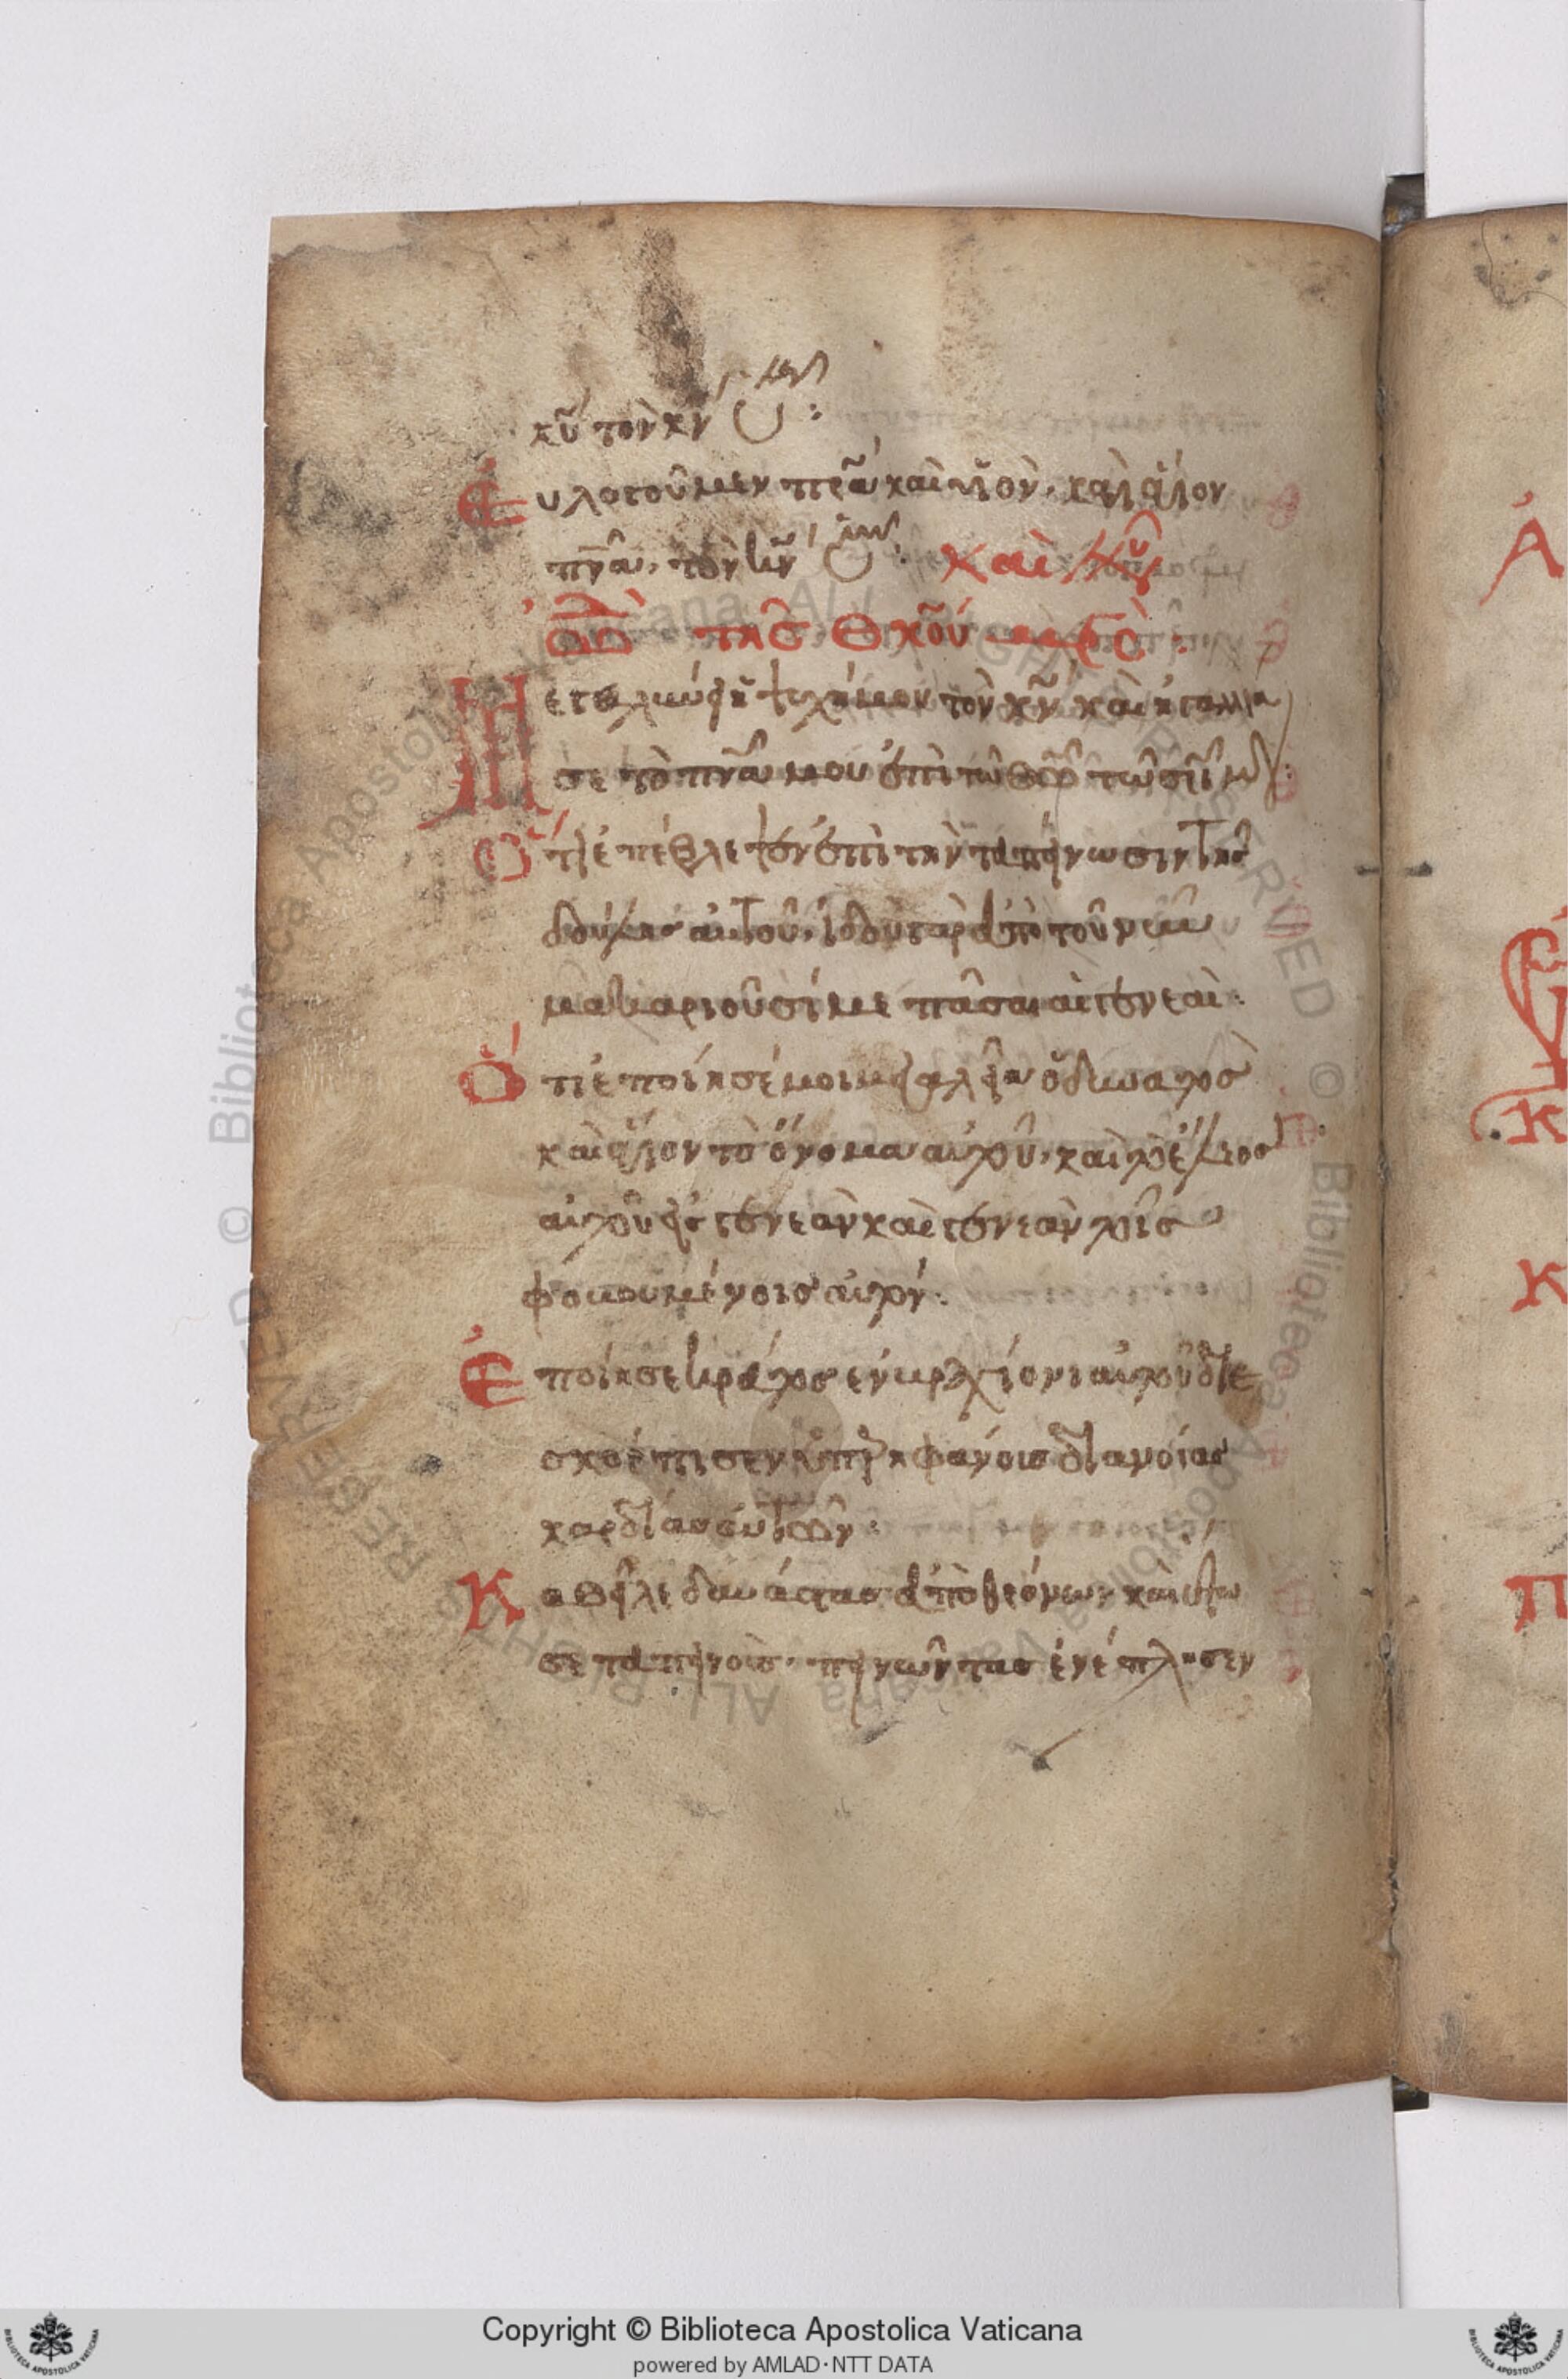 κῡ τὸν κν̄
Εὐλογοῦμεν πρ̄α καὶ υἱὸν, καὶ ἅγιον
πν̄α, τὸν κν̄ : καὶ
ὠδὴ τῆς θκ̄ου
Μεγαλύνει ἡ ψυχή μου τὸν κν̄, καὶ ἠγαλλία
σε τὸ πν̄α μου ἐπὶ τῶ θῶ τῶ σρ̄ι μου:
Ὅτι ἐπέβλεψεν ἐπὶ τὴν ταπείνωσιν τῆς
δούλης αὐτοῦ, ἰδοὺ γὰρ ἀπὸ τοῦ νῦν
μακαριοῦσί με πᾶσαι αἱ γενεαὶ:
Ὅτι ἐποίησέ μοι μεγαλεῖα ὁ δυνατὸς
καὶ ἅγιον τὸ ὄνομα αὐτοῦ, καὶ τὸ ἔλεος
αὐτοῦ εἰς γενεὰν καὶ γενεὰν τοῖς
φοβουμένοις αὐτόν:
Ἐποίησε κράτος ἐν βραχίονι αὐτοῦ διε
σκόρπισεν ὑπερηφάνοις διανοίας
καρδίας αὐτῶν:
Καθεῖλε δυνάστας ἀπὸ θρόνων, καὶ ὕψω
σε ταπεινοὺς, πεινῶντας ἐνέπλησεν
Copyright © Biblioteca Apostolica Vaticana
powered by AMLAD·NTT DATA